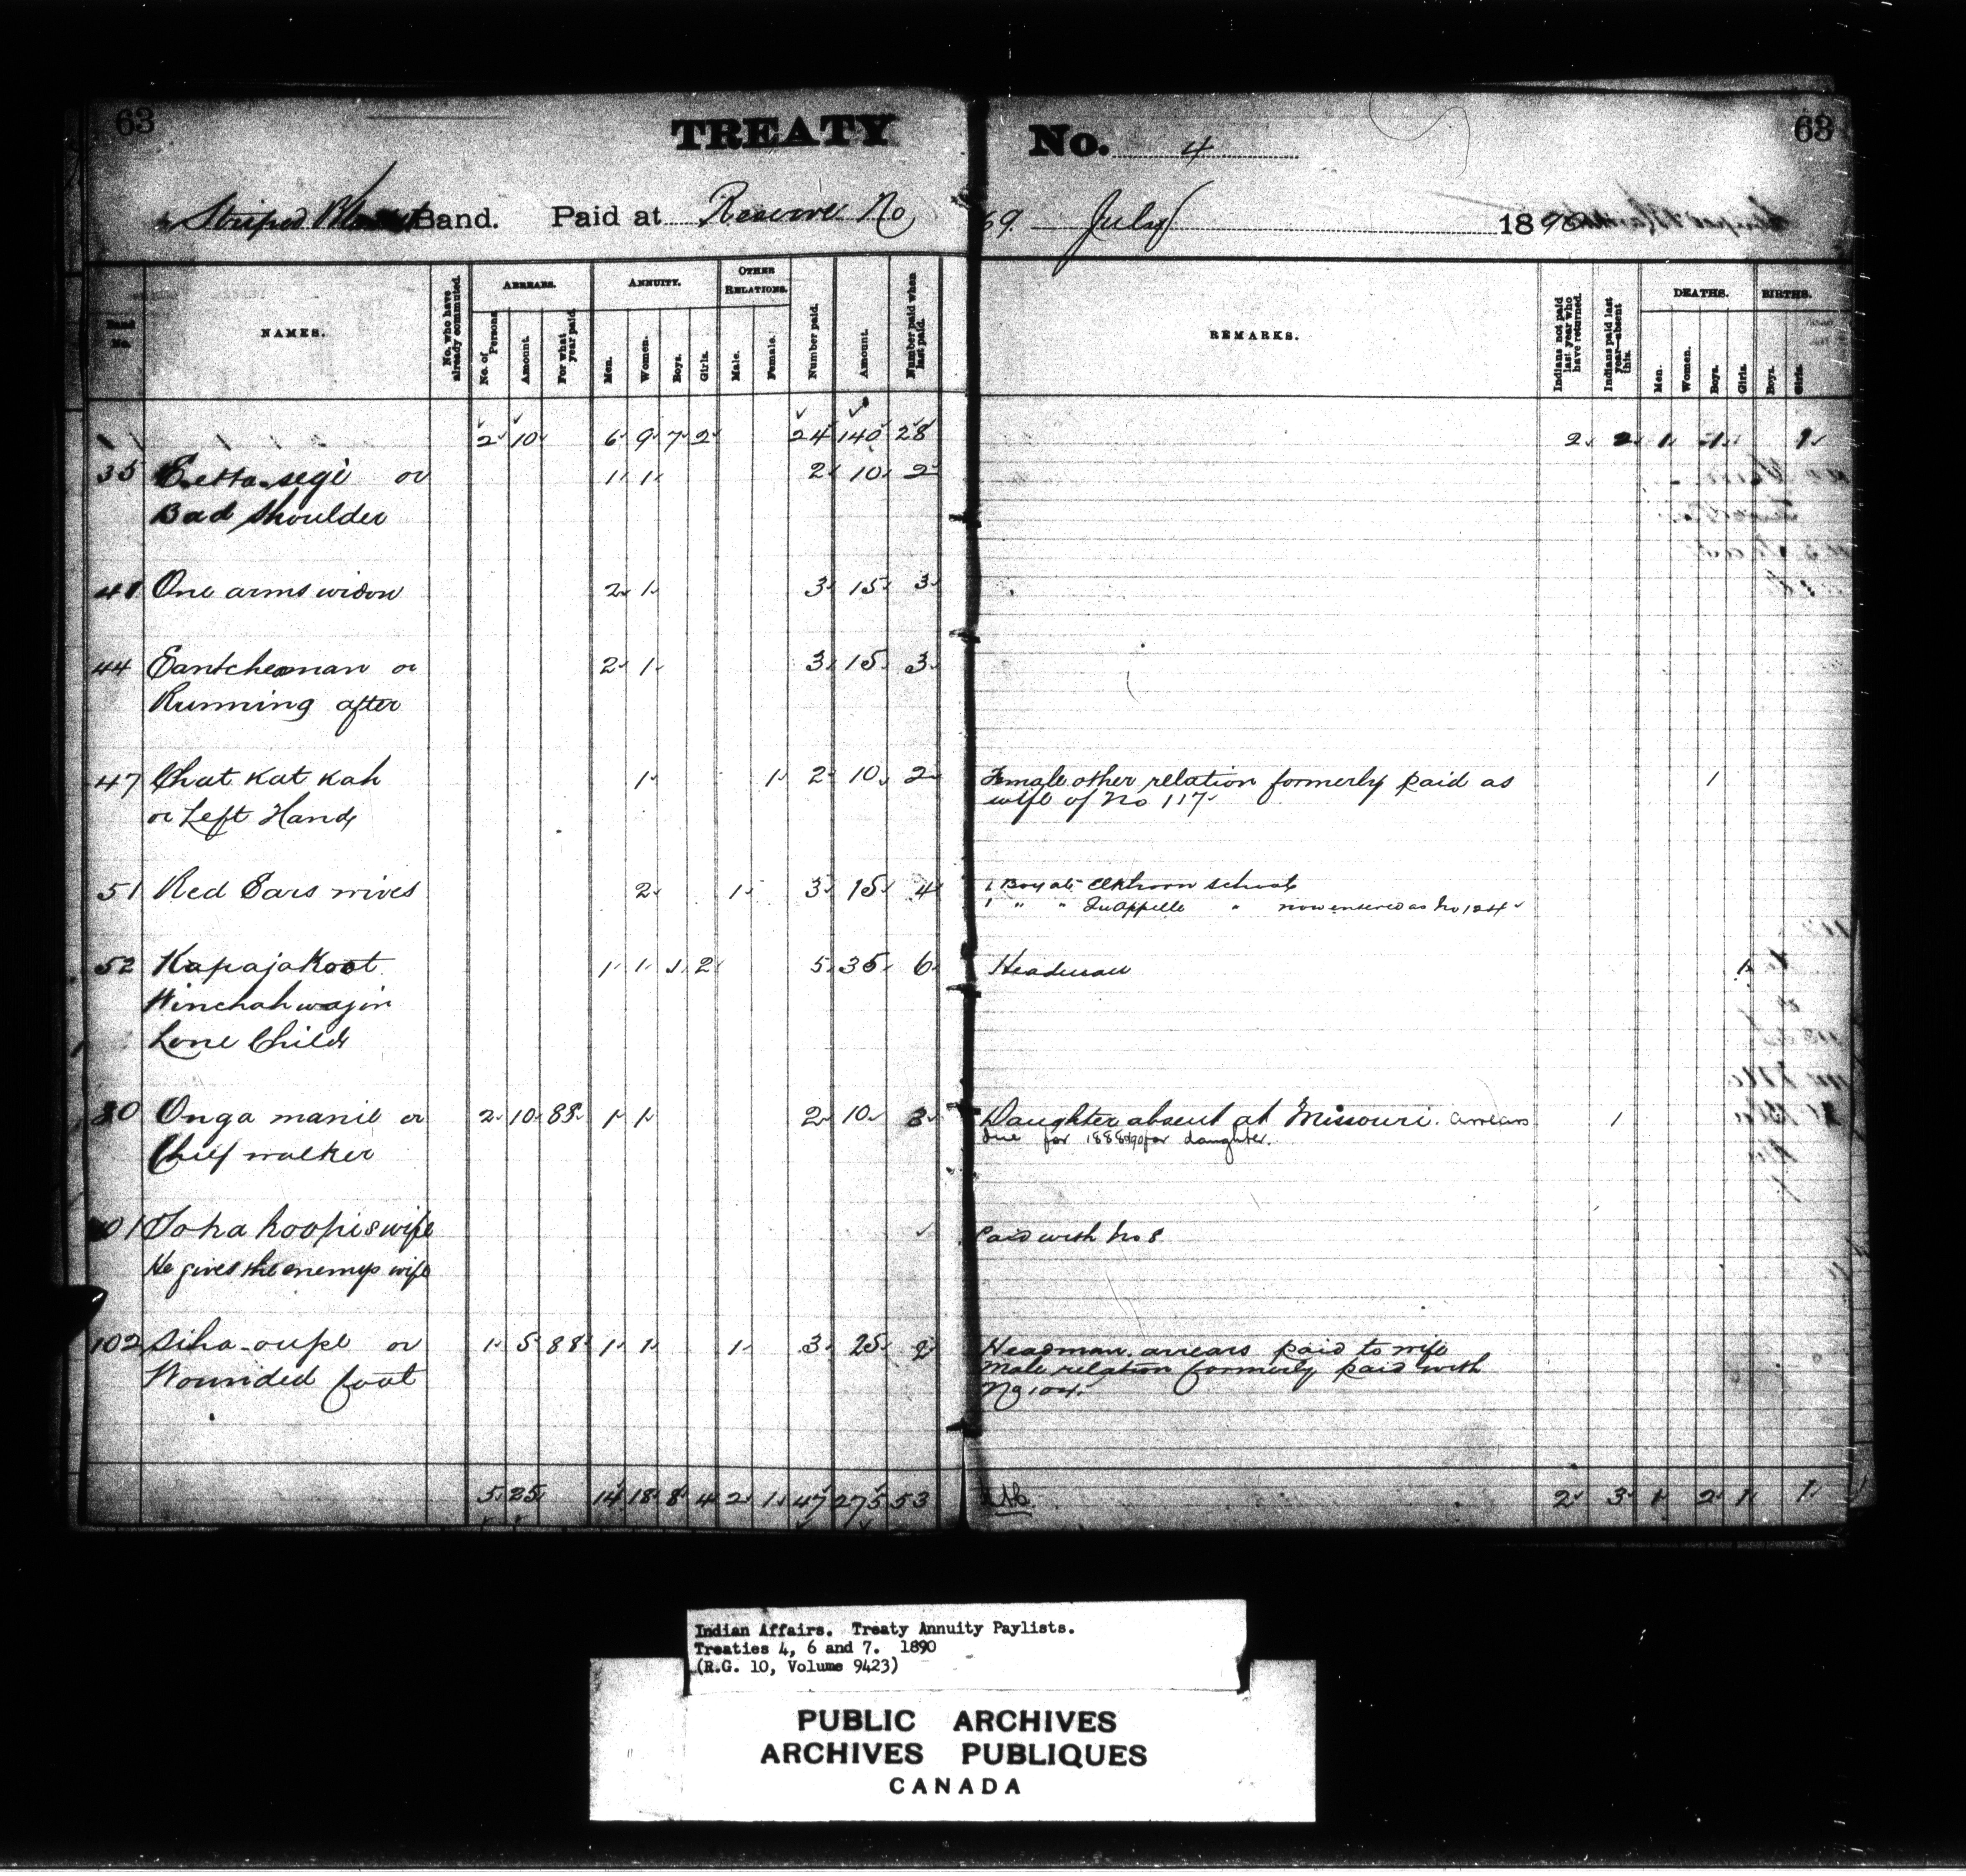 63
TREATY No. 4
63
Striped Blanket Band. Paid at Reserve No 69. July 1890
Band No.
NAMES.
No. who have already commuted.
ARREARS.
No. of Persons
Amount.
For what year paid.
ANNUITY.
Men.
Women.
Boys.
Girls.
OTHER RELATIONS.
Male.
Female.
Number paid.
Amount.
Number paid when last paid.
REMARKS.
Indians not paid last year who have returned.
Indians paid last year—absent this.
DEATHS.
Men.
Women.
Boys.
Girls.
BIRTHS.
Boys.
Girls.
2 10 6 9 7 2 24 140 28 2 2 1 1 1
35 Eetta-sege or 1 1 2 10 2
Bad Shoulder
41 One arms widow 2 1 3 15 3
44 Eantcheaman or 2 1 3 15 3
Running after
47 Chat Kat Kah 1 1 2 10 2 Female other relation formerly paid as 1
or Left Hand wife of No 117
51 Red Ears wives 2 1 3 15 4 1 Boy at Elkhorn School
1 " " Qu'Appelle " now entered as No 124
52 Kapaja Koot 1 1 1 2 5 35 6 Headman 1
Winchahwajin
Lone Child
80 Onga manie or 2 10 88 1 1 2 10 3 Daughter absent at Missouri. arrears 1
Chief walker due for 1888 & 90 for daughter.
101 Toka Koopis wife Paid with No 8
He gives the enemys wife
102 Siha-oupe or 1 5 88 1 1 1 3 25 2 Headman. arrears paid to wife
Wounded foot Male relation formerly paid with
No 104.
5 25 14 18 8 4 2 1 47 275 53 2 3 1 2 1 1
Indian Affairs. Treaty Annuity Paylists.
Treaties 4, 6 and 7. 1890
(R.G. 10, Volume 9423)
PUBLIC ARCHIVES
ARCHIVES PUBLIQUES
CANADA